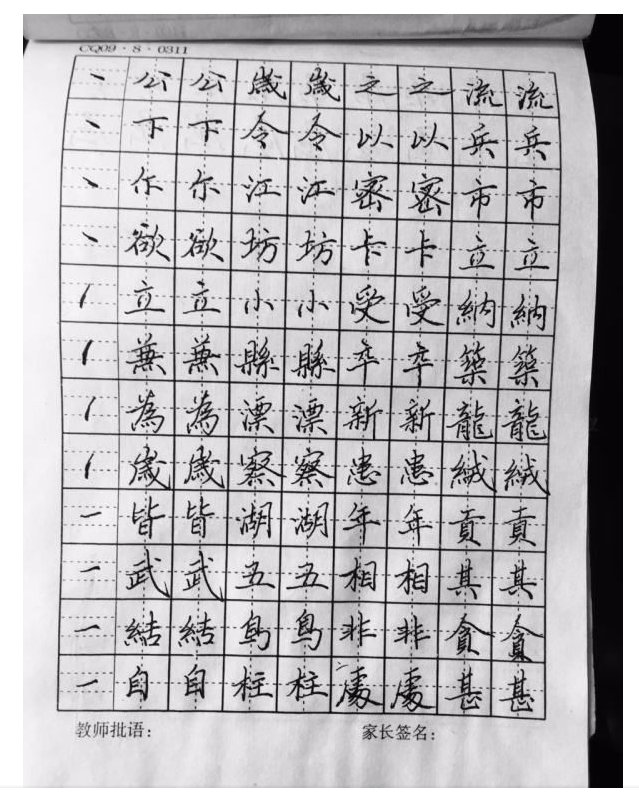 CQ09·8·0311
丶 公 公 歲 歲 之 之 流 流
丶 下 下 令 令 以 以 兵 兵
丶 尔 尔 江 江 密 密 市 市
丶 欲 欲 坊 坊 卡 卡 立 立
丿 立 立 小 小 受 受 納 納
丿 蕪 蕪 縣 縣 卒 卒 築 築
丿 為 為 漂 漂 新 新 龍 龍
丿 歲 歲 察 察 患 患 絨 絨
一 皆 皆 湖 湖 年 年 貢 貢
一 武 武 五 五 相 相 其 其
一 結 結 鳥 鳥 非 非 貪 貪
一 自 自 柱 柱 處 處 甚 甚
教师批语： 家长签名：